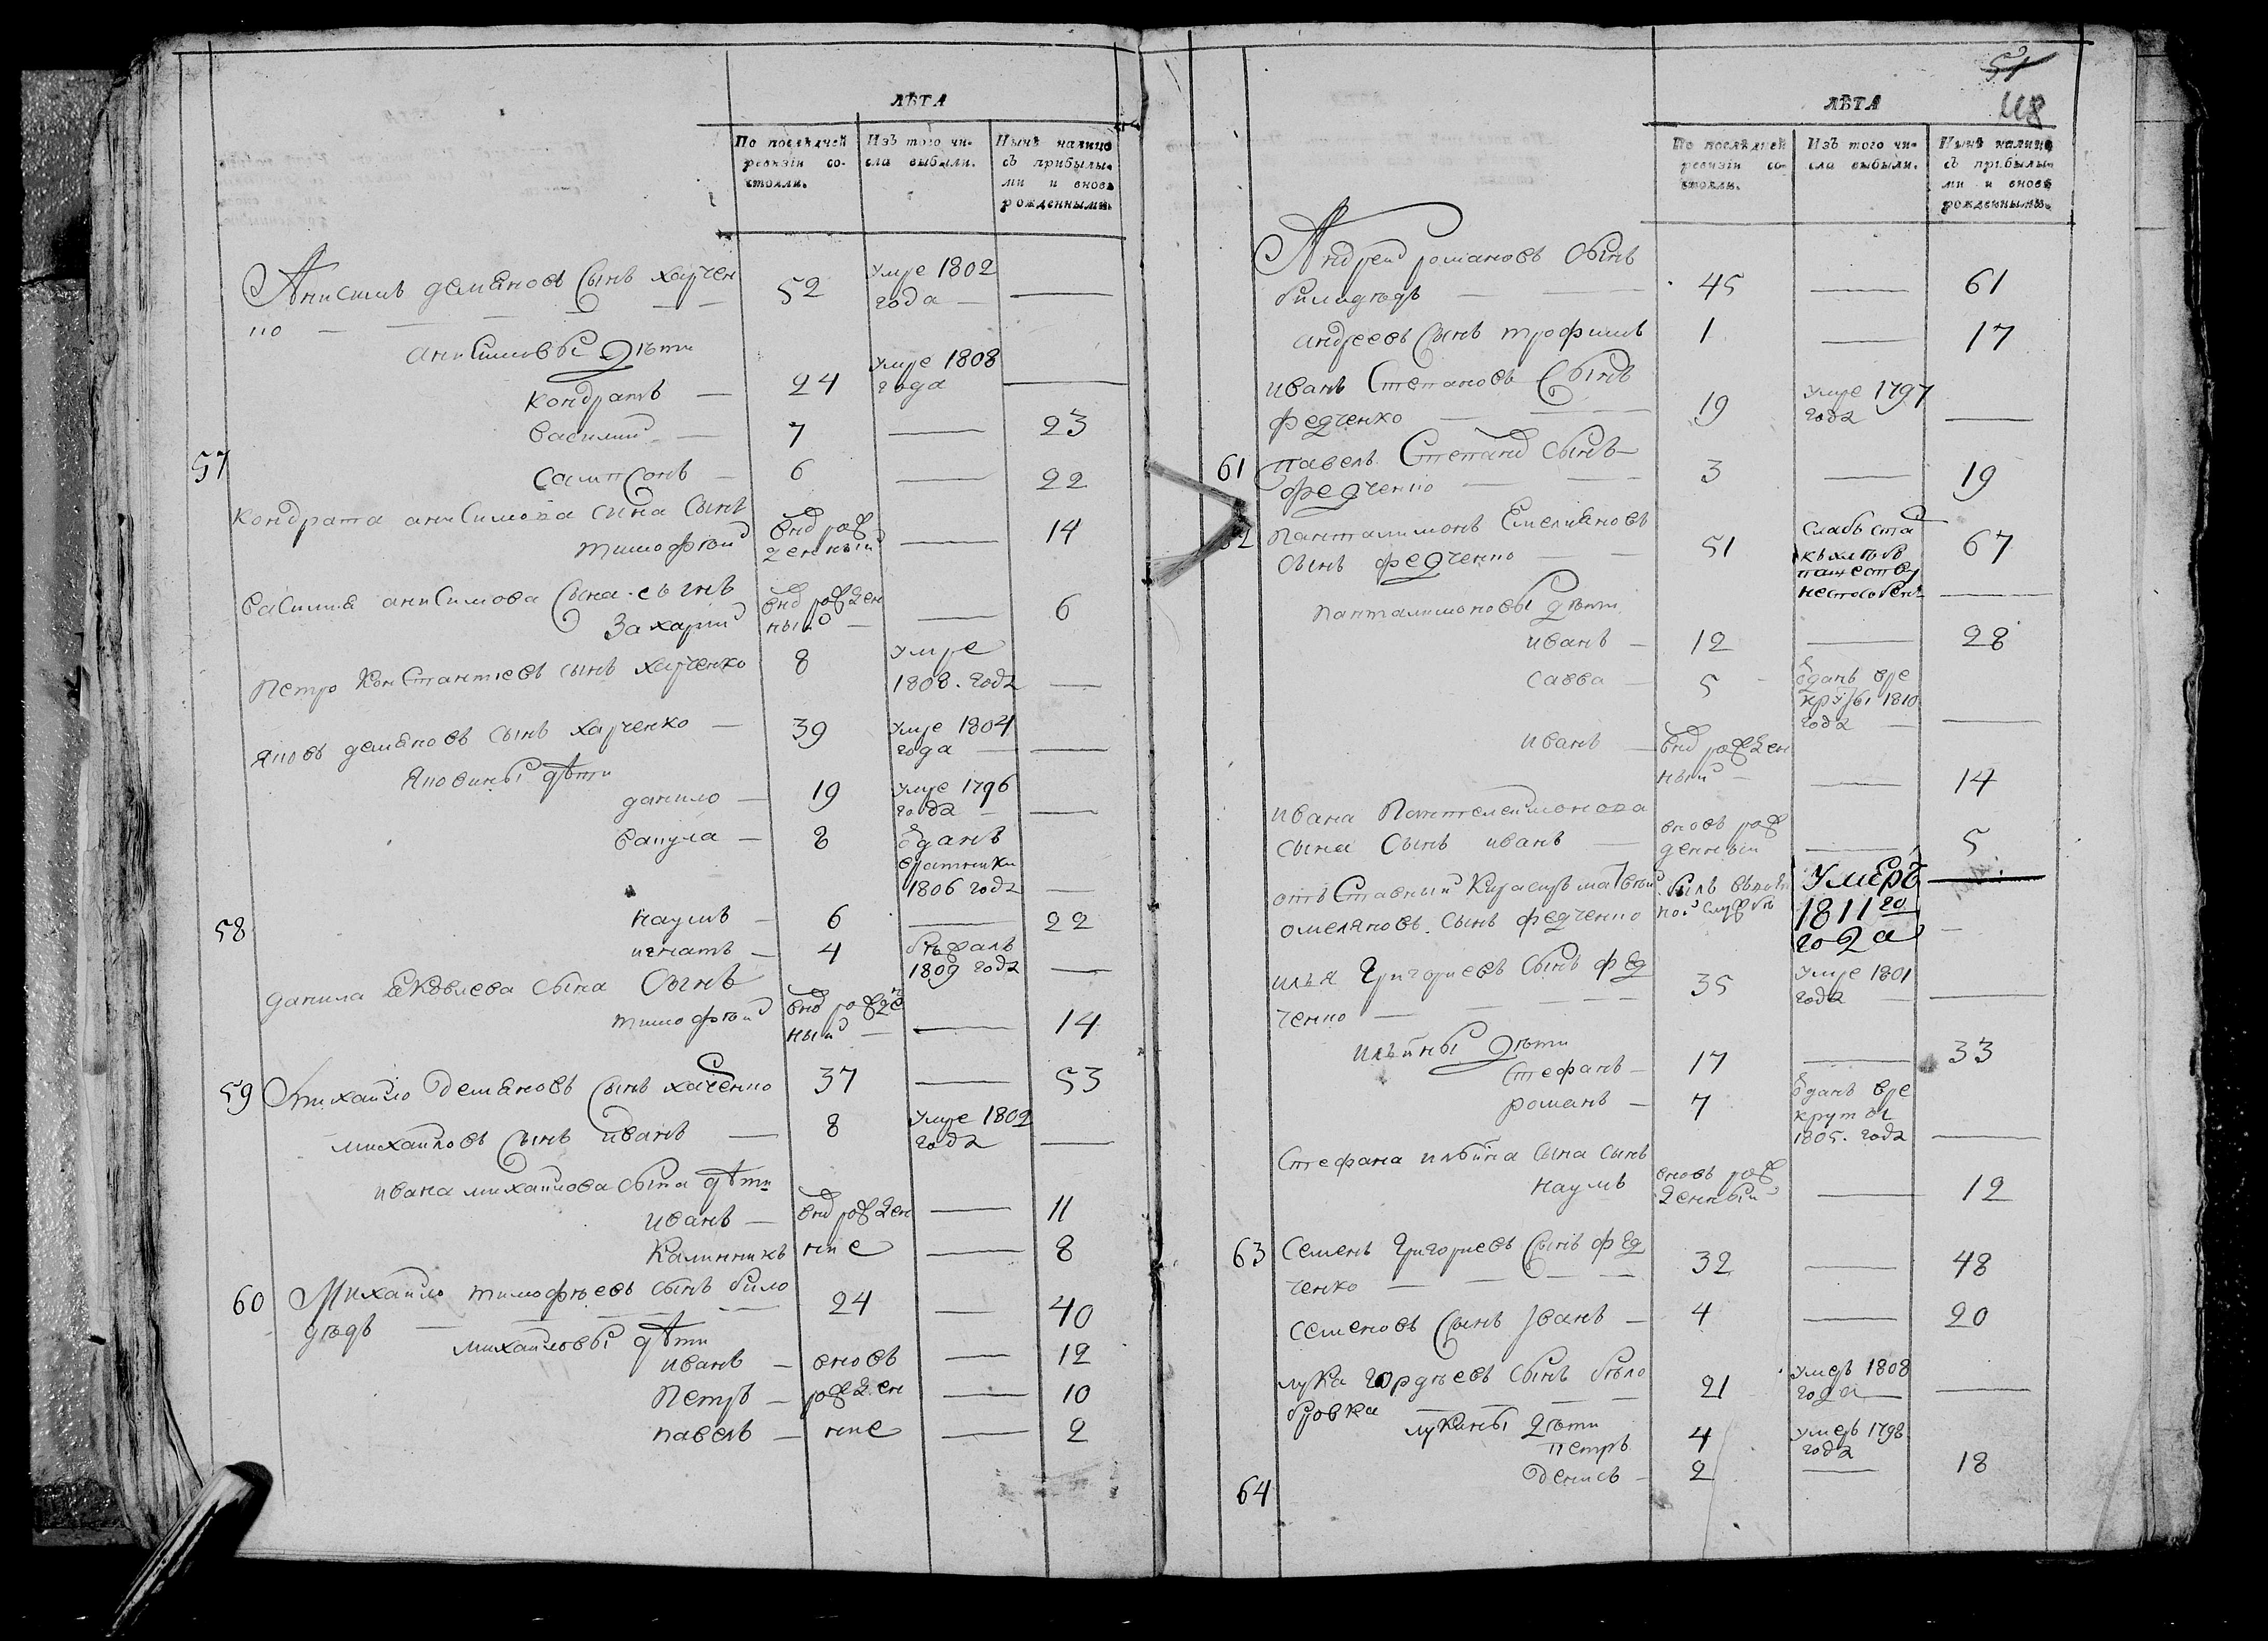 ЛѢТА
По послѣдней ревизіи со- стояли.
Изъ того чи- сла выбыли.
Нынѣ налицо съ прибылы- ми и вновь рожденными.
Анисимъ демяновъ Сынъ харчен 52 умре 1802
но года —
анисимовы дѣти
кондратъ — 24 умре 1808 года —
василий — 7 — 23
57
сампсонъ — 6 — 22
кондрата анисимова сина Сынъ
тимофѣй внов рож денный — 14
василия анисимова Сына сынъ
Захарий внов рожден ный — 6
петро Констант҃иевъ сынъ харченко 8 умре 1808. года —
яковъ демяновъ сынъ харченко — 39 умре 1804 года —
яковины дѣти
данило — 19 умре 1796 года —
вакула — 8 зданъ вратники 1806 года —
58
наумъ — 6 — 22
игнатъ — 4 бѣжалъ 1809 года —
данила яковлева сына Сынъ
тимофѣй внов рожден ный — 14
59 михайло Демяновъ Сынъ хаченко 37 — 53
михайловъ Сынъ иванъ — 8 умре 1802 года —
ивана михайлова сына дѣти
иванъ — внов рожден — 11
калинникъ ние — 8
60 Михайло тимофѣевъ сынъ било 24 — 40
дѣдъ
михайловы дѣти
иванъ — вновь — 12
Петръ — рожден — 10
павелъ — ние — 2
51
48
ЛѢТА
По послѣдней ревизіи со- стояли.
Изъ того чи- сла выбыли.
Нынѣ налицо съ прибылы- ми и вновь рожденными.
Андрей романовъ Сынъ
билидѣдъ — 45 — 61
андреевъ Сынъ трофимъ 1 — 17
иванъ Степановъ Сынъ
федченко — 19 умре 1797 года —
61 павелъ Степанов Сынъ
федченко — 3 — 19
62 Панталимонъ Емелияновъ
Сынъ федченко — 51 слабъ ста къ хлѣбо пашеству неспособенъ 67
панталимоновы дѣти
иванъ — 12 — 28
савва — 5 зданъ вре круты 1810 года —
иванъ — внов рожден ный — 14
ивана Пантелеймонова
сына Сынъ иванъ — вновь рож денный — 5
отъставний Кирасиръ матвѣй былъ въ воен ной службѣ Умеръ 1811го года —
омеляновъ сынъ федченко
илья григориевъ Сынъ фед 35 умре 1801 года —
ченко —
ильины дѣти
Стефанъ — 17 — 33
романъ — 7 зданъ вре круты 1805. года —
Стефана ильина сына сынъ
наумъ вновь рож денный — 12
63 Семенъ григориевъ Сынъ фед 32 — 48
ченко —
семеновъ Сынъ Іванъ — 4 — 20
лука гордѣевъ Сынъ бѣло 21 умеръ 1808 года —
бровка
лукины дѣти
петръ 4 умеръ 1798 года
денисъ — 2 — 18
64